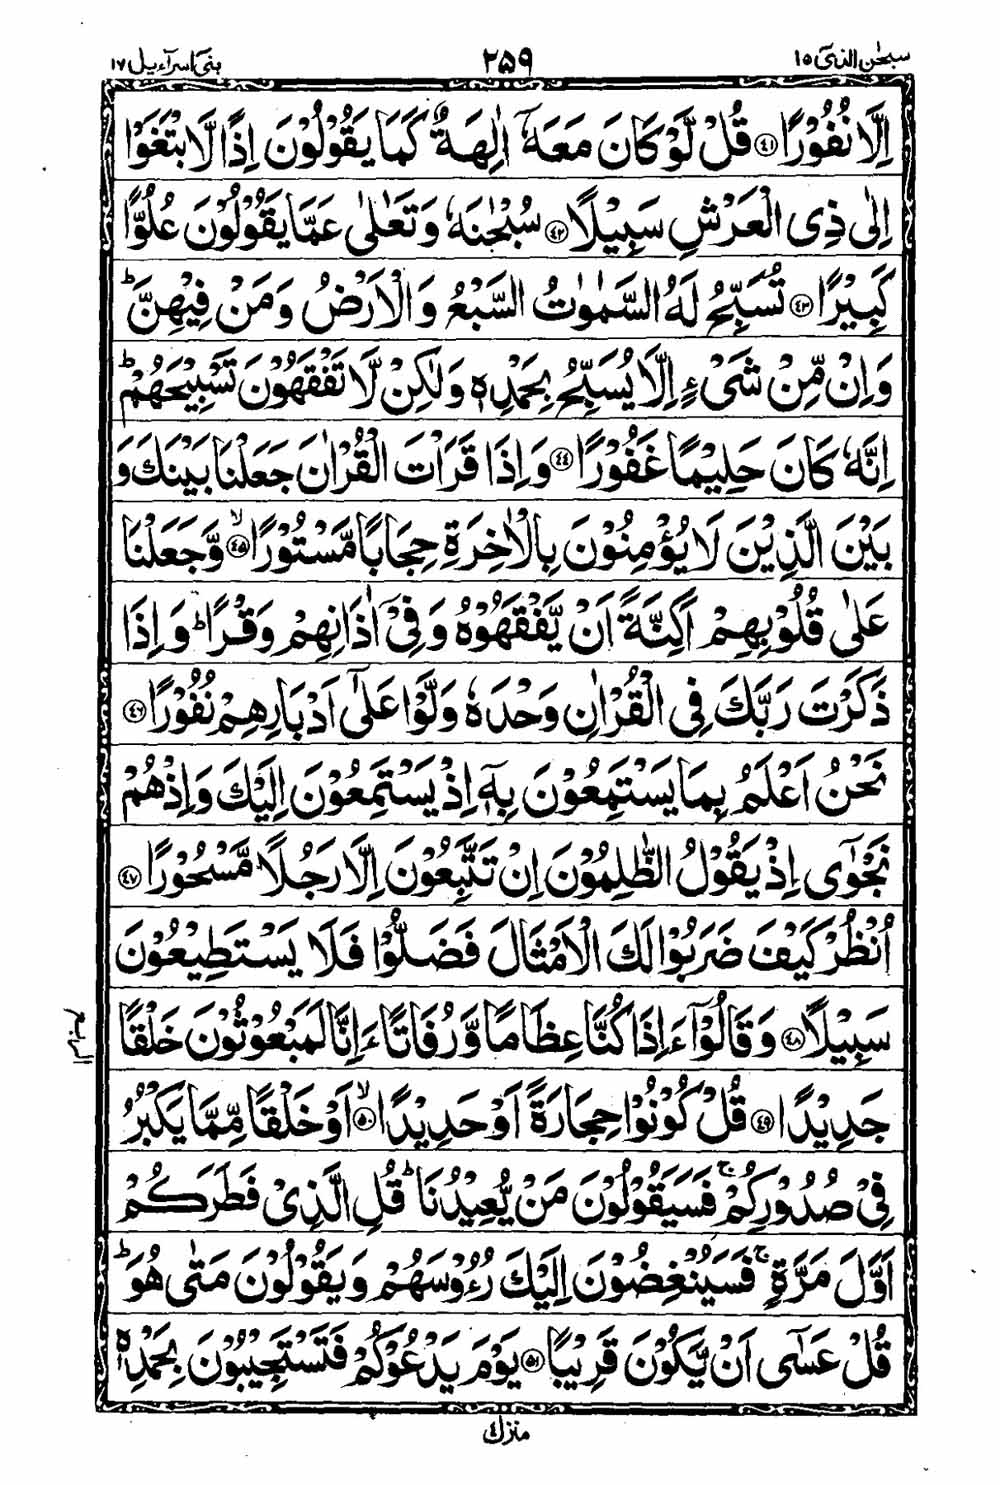 سبحٰن الذی ۱۵
۲۵۹
بنی اسرآءیل ۱۷
اِلَّا نُفُوْرًا ﴿۴۱﴾ قُلْ لَّوْ كَانَ مَعَهٗۤ اٰلِهَةٌ كَمَا يَقُوْلُوْنَ اِذًا لَّابْتَغَوْا
اِلٰى ذِى الْعَرْشِ سَبِيْلًا ﴿۴۲﴾ سُبْحٰنَهٗ وَتَعٰلٰى عَمَّا يَقُوْلُوْنَ عُلُوًّا
كَبِيْرًا ﴿۴۳﴾ تُسَبِّحُ لَهُ السَّمٰوٰتُ السَّبْعُ وَالْاَرْضُ وَمَنْ فِيْهِنَّ ؕ
وَاِنْ مِّنْ شَىْءٍ اِلَّا يُسَبِّحُ بِحَمْدِهٖ وَلٰكِنْ لَّا تَفْقَهُوْنَ تَسْبِيْحَهُمْ ؕ
اِنَّهٗ كَانَ حَلِيْمًا غَفُوْرًا ﴿۴۴﴾ وَاِذَا قَرَاْتَ الْقُرْاٰنَ جَعَلْنَا بَيْنَكَ وَ
بَيْنَ الَّذِيْنَ لَا يُؤْمِنُوْنَ بِالْاٰخِرَةِ حِجَابًا مَّسْتُوْرًا ۙ﴿۴۵﴾ وَّجَعَلْنَا
عَلٰى قُلُوْبِهِمْ اَكِنَّةً اَنْ يَّفْقَهُوْهُ وَفِىْۤ اٰذَانِهِمْ وَقْرًا ؕ وَاِذَا
ذَكَرْتَ رَبَّكَ فِى الْقُرْاٰنِ وَحْدَهٗ وَلَّوْا عَلٰۤى اَدْبَارِهِمْ نُفُوْرًا ﴿۴۶﴾
نَحْنُ اَعْلَمُ بِمَا يَسْتَمِعُوْنَ بِهٖۤ اِذْ يَسْتَمِعُوْنَ اِلَيْكَ وَاِذْ هُمْ
نَجْوٰۤى اِذْ يَقُوْلُ الظّٰلِمُوْنَ اِنْ تَتَّبِعُوْنَ اِلَّا رَجُلًا مَّسْحُوْرًا ﴿۴۷﴾
اُنْظُرْ كَيْفَ ضَرَبُوْا لَكَ الْاَمْثَالَ فَضَلُّوْا فَلَا يَسْتَطِيْعُوْنَ
سَبِيْلًا ﴿۴۸﴾ وَقَالُوْۤا ءَاِذَا كُنَّا عِظَامًا وَّرُفَاتًا ءَاِنَّا لَمَبْعُوْثُوْنَ خَلْقًا
جَدِيْدًا ﴿۴۹﴾ قُلْ كُوْنُوْا حِجَارَةً اَوْ حَدِيْدًا ۙ﴿۵۰﴾ اَوْ خَلْقًا مِّمَّا يَكْبُرُ
فِىْ صُدُوْرِكُمْ ۚ فَسَيَقُوْلُوْنَ مَنْ يُّعِيْدُنَا ؕ قُلِ الَّذِىْ فَطَرَكُمْ
اَوَّلَ مَرَّةٍ ۚ فَسَيُنْغِضُوْنَ اِلَيْكَ رُءُوْسَهُمْ وَيَقُوْلُوْنَ مَتٰى هُوَ ؕ
قُلْ عَسٰۤى اَنْ يَّكُوْنَ قَرِيْبًا ﴿۵۱﴾ يَوْمَ يَدْعُوْكُمْ فَتَسْتَجِيْبُوْنَ بِحَمْدِهٖ
الرابع
منزل ۴